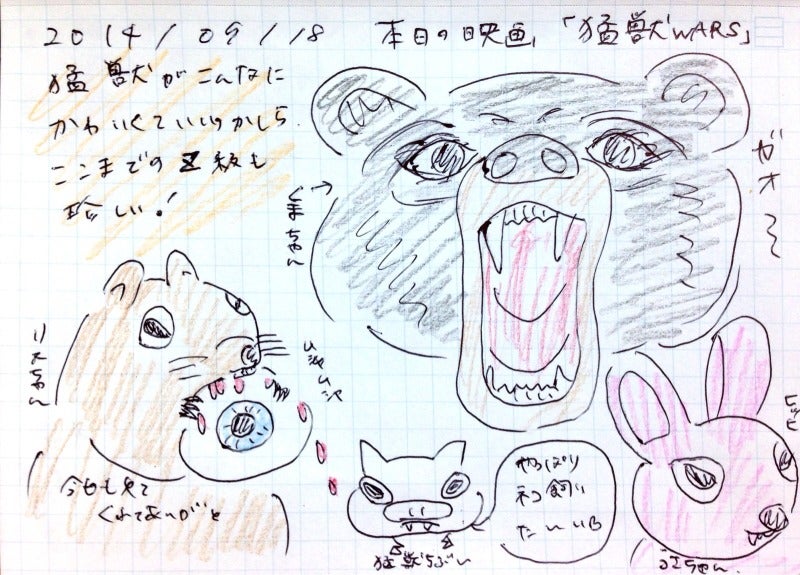 2014/09/18 本日の映画「猛獣WARS」
猛獣がこんなに
かわいくていいのかしら
ここまでのZ級も
珍しい!
くまちゃん
ガオー
リスちゃん
ムシャムシャ
今日も見て
くれてありがと
やっぱり
ネコ飼い
たいいB
猛獣らぶい
ヒッヒ
うさちゃん